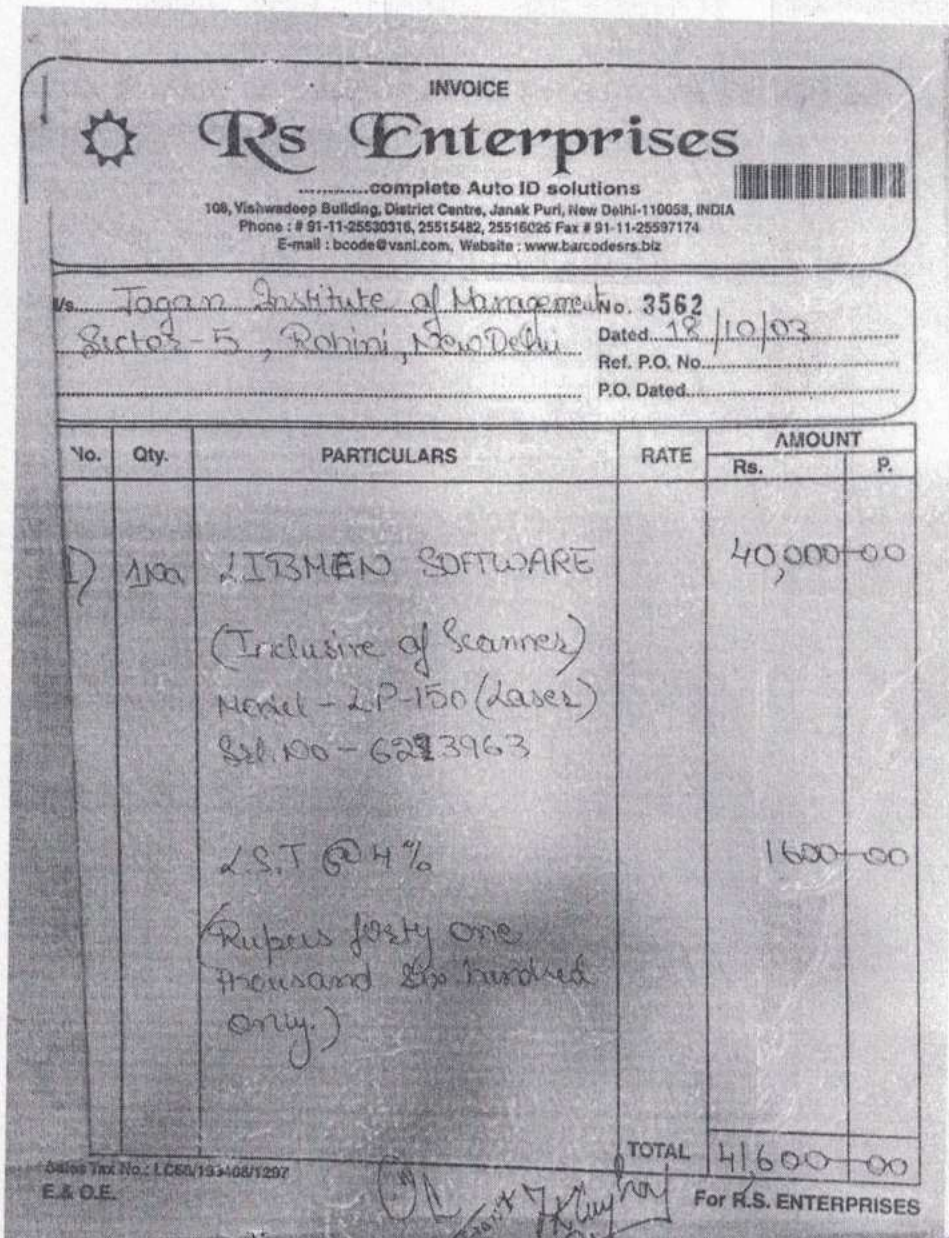 INVOICE
Rs Enterprises
............complete Auto ID solutions
108, Vishwadeep Building, District Centre, Janak Puri, New Delhi-110058, INDIA
Phone : # 91-11-25530316, 25515482, 25516026 Fax # 91-11-25597174
E-mail : bcode@vsnl.com, Website : www.barcodesrs.biz
/s. Jagan Institute of Management No. 3562
Sector-5, Rohini, New Delhi Dated 18/10/03
Ref. P.O. No.
P.O. Dated
No. Qty. PARTICULARS RATE AMOUNT
Rs. P.
1) 1No LIBMEN SOFTWARE 40,000-00
(Inclusive of Scanner)
Model - LP-150 (Laser)
Srl. No - 6213963
L.S.T @ 4% 1600-00
(Rupees forty one
thousand six hundred
only.)
TOTAL 41,600-00
Sales Tax No.: LC66/193408/1297
E.& O.E.
For R.S. ENTERPRISES